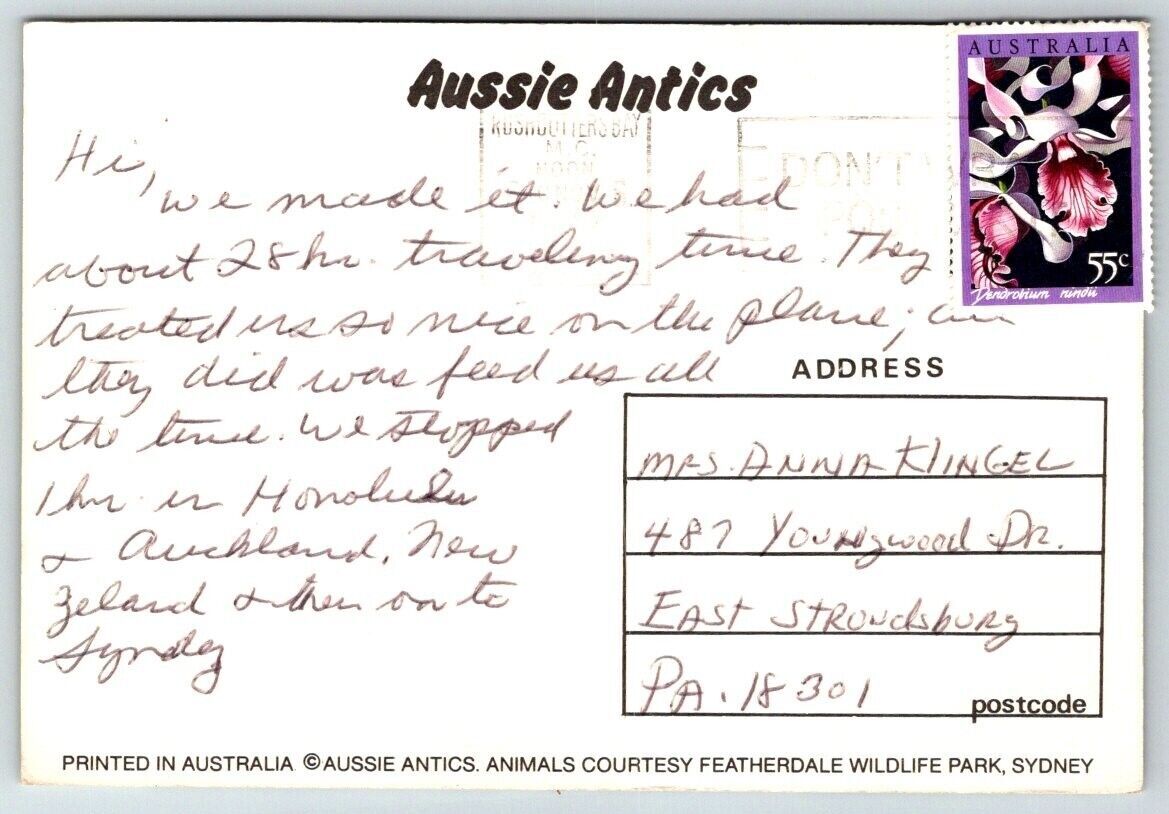 Aussie Antics
AUSTRALIA
55c
Dendrobium nindii
RUSHCUTTERS BAY
M.C.
NOON
DON'T
Hi,
we made it. We had
about 28 hr. traveling time. They
treated us so nice on the plane; all
they did was feed us all
the time. We stopped
1 hr in Honolulu
& Auckland, New
Zeland & then on to
Syndey
ADDRESS
MRS. ANNA KLINGEL
487 Youngwood DR.
EAST STROUDSBURG
PA. 18301
postcode
PRINTED IN AUSTRALIA ©AUSSIE ANTICS. ANIMALS COURTESY FEATHERDALE WILDLIFE PARK, SYDNEY